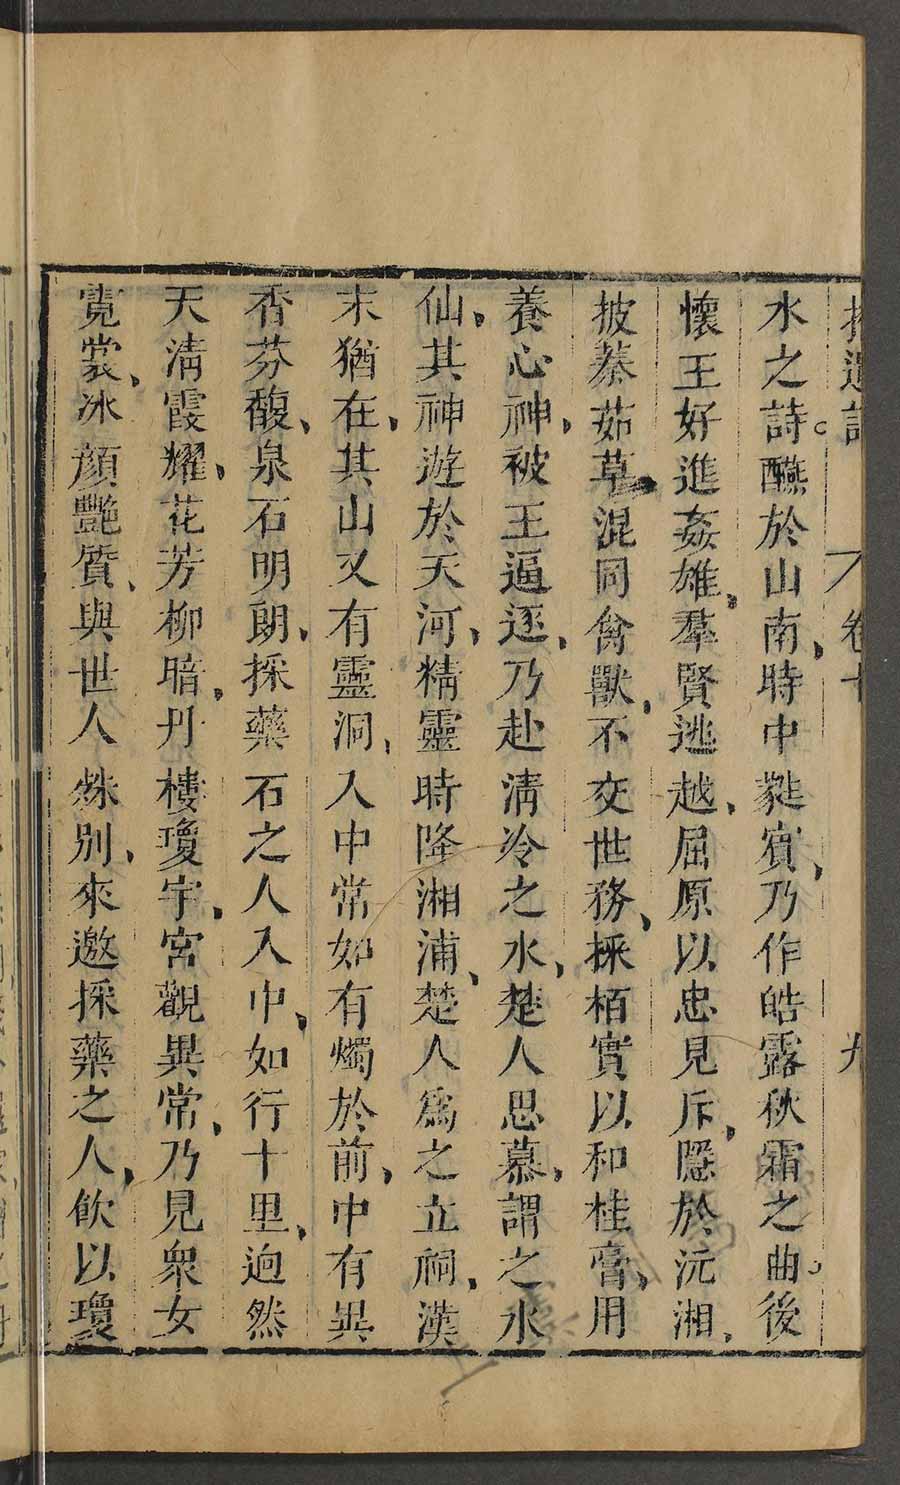 拾遺記 卷十 九
水之詩醼於山南時中蕤賓乃作皓露秋霜之曲後
懷王好進姦雄羣賢逃越屈原以忠見斥隱於沅湘
披蓁茹草混同禽獸不交世務採栢實以和桂膏用
養心神被王逼逐乃赴淸泠之水楚人思慕謂之水
仙其神遊於天河精靈時降湘浦楚人爲之立祠漢
末猶在其山又有靈洞入中常如有燭於前中有異
香芬馥泉石明朗採藥石之人入中如行十里迥然
天淸霞耀花芳柳暗丹樓瓊宇宮觀異常乃見衆女
霓裳冰顔艷質與世人殊別來邀採藥之人飲以瓊